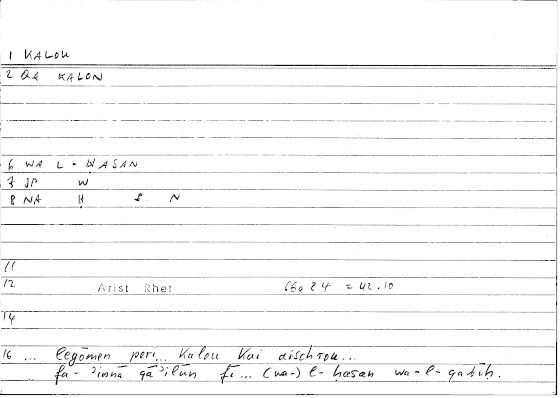 1 KALOU
2 QA KALON
6 WA L - ḤASAN
7 JP W
8 NA Ḥ S N
11
12 Arist Rhet 66a24 = 42.10
14
16 ... legómen peri... Kalou Kai aischrou...
fa-ʾinnā qāʾilūn fī... (wa-) l-ḥasan wa-l-qabīḥ.